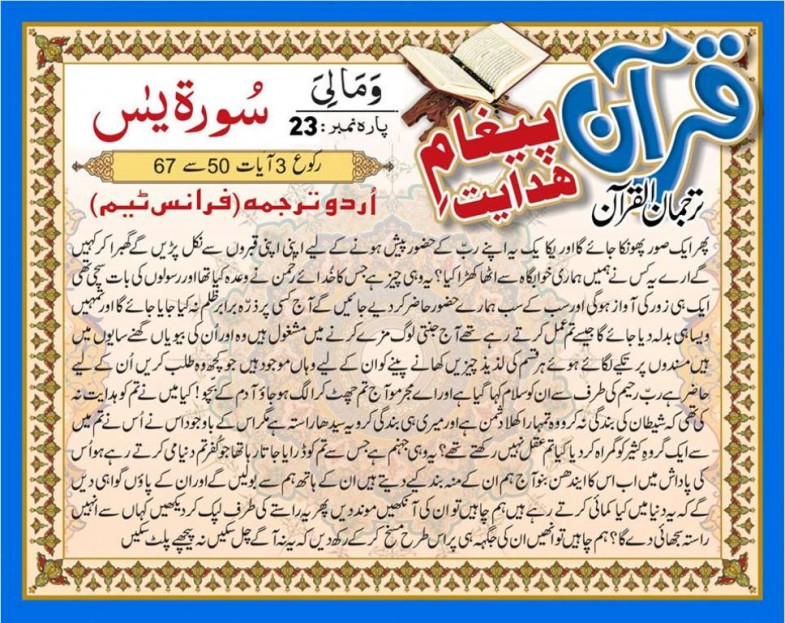 قرآن
پیغامِ
ھدایت
ترجمان القرآن
وَمَالِیَ
پارہ نمبر: 23
سُورة یٰس
رکوع 3 آیات 50 سے 67
اُردو ترجمہ (فرانس ٹیم)
پھر ایک صور پھونکا جائے گا اور یکا یک یہ اپنے ربّ کے حضور پیش ہونے کے لیے اپنی اپنی قبروں سے نکل پڑیں گے گھبرا کر کہیں
گے ارے یہ کس نے ہمیں ہماری خوابگاہ سے اٹھا کھڑا کیا؟ یہ وہی چیز ہے جس کا خُدائے رحمٰن نے وعدہ کیا تھا اور رسولوں کی بات سچی تھی
ایک ہی زور کی آواز ہوگی اور سب کے سب ہمارے حضور حاضر کر دیے جائیں گے آج کسی پر ذرّہ برابر ظلم نہ کیا جایا جائے گا اور تمہیں
ویسا ہی بدلہ دیا جائے گا جیسے تم عمل کرتے رہے تھے آج جنتی لوگ مزے کرنے میں مشغول ہیں وہ اور اُن کی بیویاں گھنے سایوں میں
ہیں مسندوں پر تکیے لگائے ہوئے ہر قسم کی لذیذ چیزیں کھانے پینے کو ان کے لیے وہاں موجود ہیں جو کچھ وہ طلب کریں اُن کے لیے
حاضر ہے ربّ رحیم کی طرف سے ان کو سلام کہا گیا ہے اور اے مجرمو آج تم چھٹ کر الگ ہو جاؤ آدم کے بچو! کیا میں نے تم کو ہدایت نہ
کی تھی کہ شیطان کی بندگی نہ کرو وہ تمہارا کھلا دشمن ہے اور میری ہی بندگی کرو یہ سیدھا راستہ ہے مگر اس کے باوجود اس نے اُس نے تم میں
سے ایک گروہِ کثیر کو گمراہ کر دیا کیا تم عقل نہیں رکھتے تھے؟ یہ وہی جہنم ہے جس سے تم کو ڈرایا جاتا رہا تھا جو کُفر تم دنیا میں کرتے رہے ہو اُس
کی پاداش میں اب اس کا ایندھن بنو آج ہم ان کے منہ بند کیے دیتے ہیں ان کے ہاتھ ہم سے بولیں گے اور ان کے پاؤں گواہی دیں
گے کہ یہ دنیا میں کیا کمائی کرتے رہے ہیں ہم چاہیں تو ان کی آنکھیں موند دیں پھر یہ راستے کی طرف لپک کر دیکھیں کہاں سے انہیں
راستہ سجھائی دے گا؟ ہم چاہیں تو انھیں ان کی جگہہ ہی پر اس طرح مسخ کر کے رکھ دیں کہ یہ نہ آگے چل سکیں نہ پیچھے پلٹ سکیں